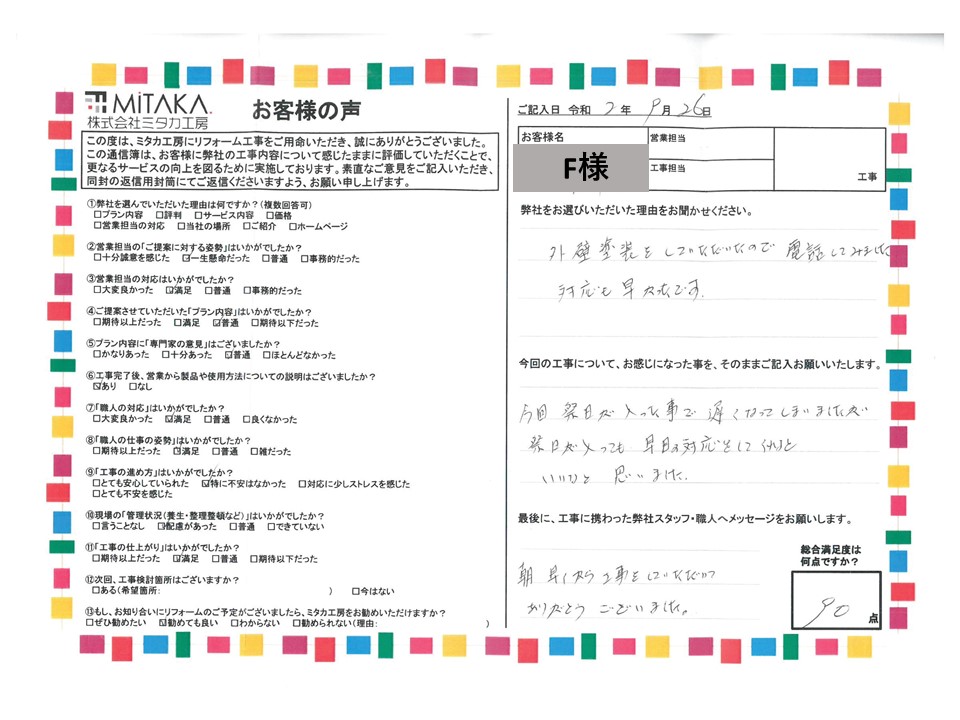 MiTAKA
株式会社ミタカ工房
お客様の声
この度は、ミタカ工房にリフォーム工事をご用命いただき、誠にありがとうございました。
この通信簿は、お客様に弊社の工事内容について感じたままに評価していただくことで、
更なるサービスの向上を図るために実施しております。素直なご意見をご記入いただき、
同封の返信用封筒にてご返信くださいますよう、お願い申し上げます。
①弊社を選んでいただいた理由は何ですか?(複数回答可)
□プラン内容 □評判 □サービス内容 □価格
□営業担当の対応 □当社の場所 □ご紹介 □ホームページ
②営業担当の「ご提案に対する姿勢」はいかがでしたか?
□十分誠意を感じた ☑一生懸命だった □普通 □事務的だった
③営業担当の対応はいかがでしたか?
□大変良かった ☑満足 □普通 □事務的だった
④ご提案させていただいた「プラン内容」はいかがでしたか?
□期待以上だった □満足 ☑普通 □期待以下だった
⑤プラン内容に「専門家の意見」はございましたか?
□かなりあった □十分あった ☑普通 □ほとんどなかった
⑥工事完了後、営業から製品や使用方法についての説明はございましたか?
☑あり □なし
⑦「職人の対応」はいかがでしたか?
□大変良かった ☑満足 □普通 □良くなかった
⑧「職人の仕事の姿勢」はいかがでしたか?
□期待以上だった ☑満足 □普通 □雑だった
⑨「工事の進め方」はいかがでしたか?
□とても安心していられた ☑特に不安はなかった □対応に少しストレスを感じた
□とても不安を感じた
⑩現場の「管理状況(養生・整理整頓など)」はいかがでしたか?
□言うことなし ☑配慮があった □普通 □できていない
⑪「工事の仕上がり」はいかがでしたか?
□期待以上だった ☑満足 □普通 □期待以下だった
⑫次回、工事検討箇所はございますか?
□ある(希望箇所: ) □今はない
⑬もし、お知り合いにリフォームのご予定がございましたら、ミタカ工房をお勧めいただけますか?
□ぜひ勧めたい ☑勧めても良い □わからない □勧められない(理由: )
ご記入日 令和 2 年 9 月 26 日
お客様名
F様
営業担当
工事担当
工事
弊社をお選びいただいた理由をお聞かせください。
外壁塗装をしていただいたので電話してみました
対応も早かったです.
今回の工事について、お感じになった事を、そのままご記入お願いいたします。
今回 祭日が入った事で遅くなってしまいましたが
祭日が入っても早目の対応をしてくれると
いいなと 思いました.
最後に、工事に携わった弊社スタッフ・職人へメッセージをお願いします。
朝早くから工事をしていただいて
ありがとう ございました。
総合満足度は
何点ですか?
90 点